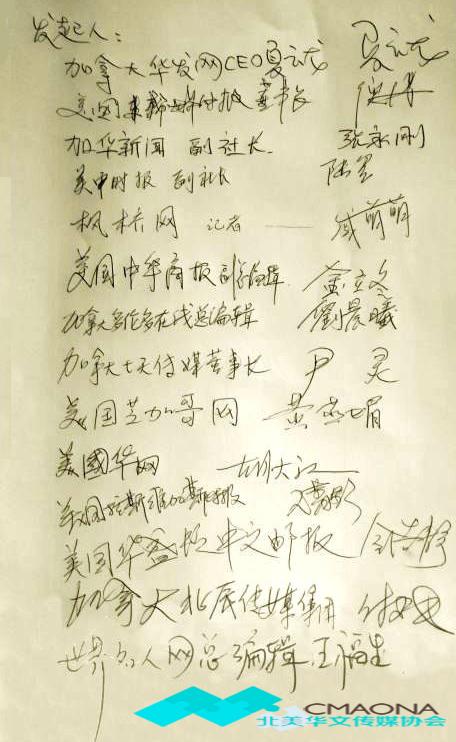 发起人：
加拿大华发网CEO夏云龙 夏云龙
美国 时报 董事长
加华新闻 副社长 张永刚
美中时报 副社长 陆星
枫桥网 记者 —— 咸萌萌
美国中华商报副总编辑 金立冬
加拿大多伦多在线总编辑 劉晨曦
加拿大七天传媒董事长 尹灵
美国芝加哥网 黄燕媚
美國华网 胡大江
美国拉斯维加斯时报
美国华盛顿中文邮报
加拿大北辰传媒集团
世界名人网总编辑 王福生
CMAONA
北美华文传媒协会